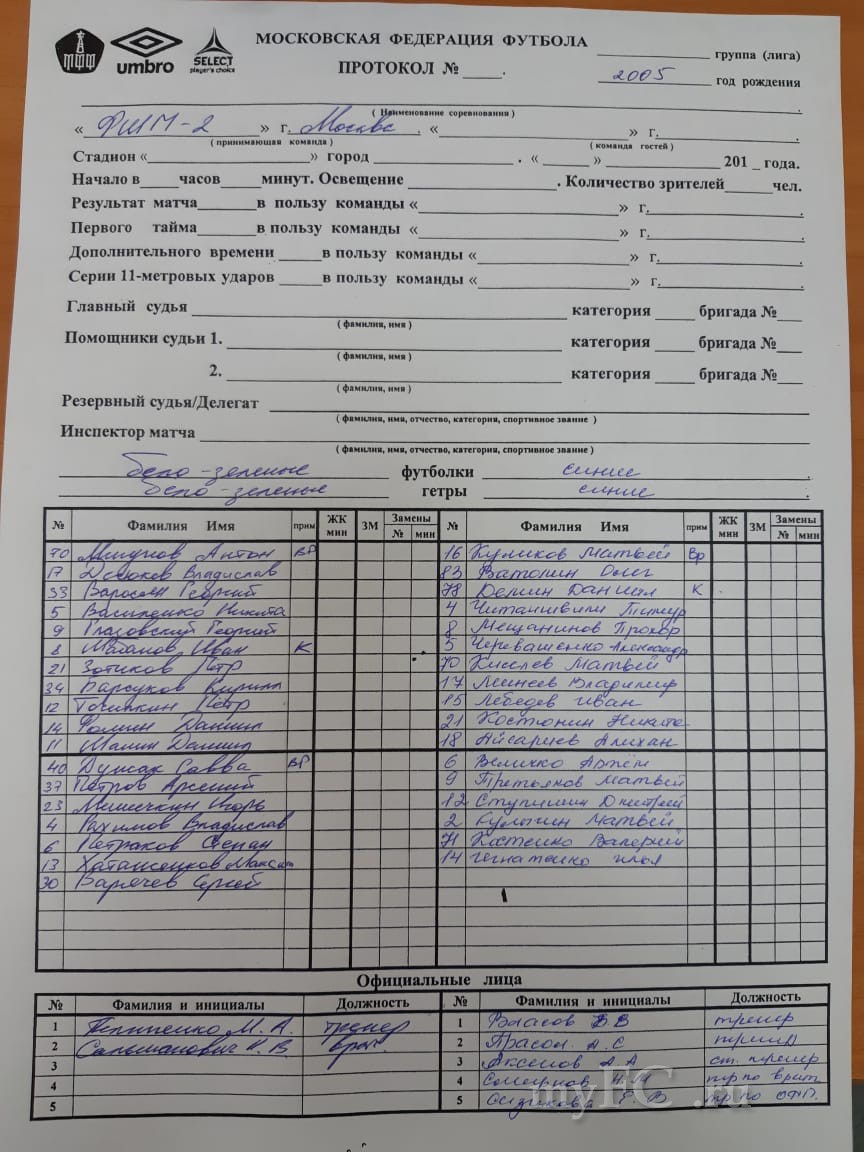 МФФ
umbro
SELECT
player's choice
МОСКОВСКАЯ ФЕДЕРАЦИЯ ФУТБОЛА
ПРОТОКОЛ № ____.
группа (лига)
2005 год рождения
( Наименование соревнования )
« ФШМ-2 » г. Москва. « » г.
( принимающая команда ) ( команда гостей )
Стадион « » город . « » 201_ года.
Начало в часов минут. Освещение . Количество зрителей чел.
Результат матча в пользу команды « » г.
Первого тайма в пользу команды « » г.
Дополнительного времени в пользу команды « » г.
Серии 11-метровых ударов в пользу команды « » г.
Главный судья категория бригада №
( фамилия, имя )
Помощники судьи 1. категория бригада №
( фамилия, имя )
2. категория бригада №
( фамилия, имя )
Резервный судья/Делегат
( фамилия, имя, отчество, категория, спортивное звание )
Инспектор матча
( фамилия, имя, отчество, категория, спортивное звание )
бело-зеленые футболки синие
бело-зеленые гетры синие
№ Фамилия Имя прим ЖК мин ЗМ Замены № мин № Фамилия Имя прим ЖК мин ЗМ Замены № мин
70 Антон ВР 16 Куликов Матвей Вр
17 Владислав 83 Ватолин Олег
33 Георгий 78 Демин Даниил К
5 Василенко Никита 4 Читаишвили Тимур
9 Глазовский Георгий 8 Мещанинов Прохор
8 Иван К 5 Черевашенко Александр
21 Зотиков Петр 70 Киселев Матвей
34 Барсуков Кирилл 17 Минеев Владимир
12 Петр 15 Лебедев Иван
14 Фомин Даниил 21 Костюнин Никита
11 Даниил 18 Алихан
40 Савва ВР 6 Величко Артём
37 Петров Арсений 9 Третьяков Матвей
23 Мишечкин Игорь 12 Ступишин Дмитрий
4 Рахимов Владислав 2 Матвей
6 Петраков Степан 71 Костенко Валерий
13 Максим 14 Игнатенко Илья
30 Сергей
Официальные лица
№ Фамилия и инициалы Должность № Фамилия и инициалы Должность
1 М. А. тренер 1 Власов В В тренер
2 врач 2 А. С тренер
3 3 Аксенов А А ст. тренер
4 4 Смирнов тр по врат
5 5 Е. В тр по ОФП.
myFC.ru